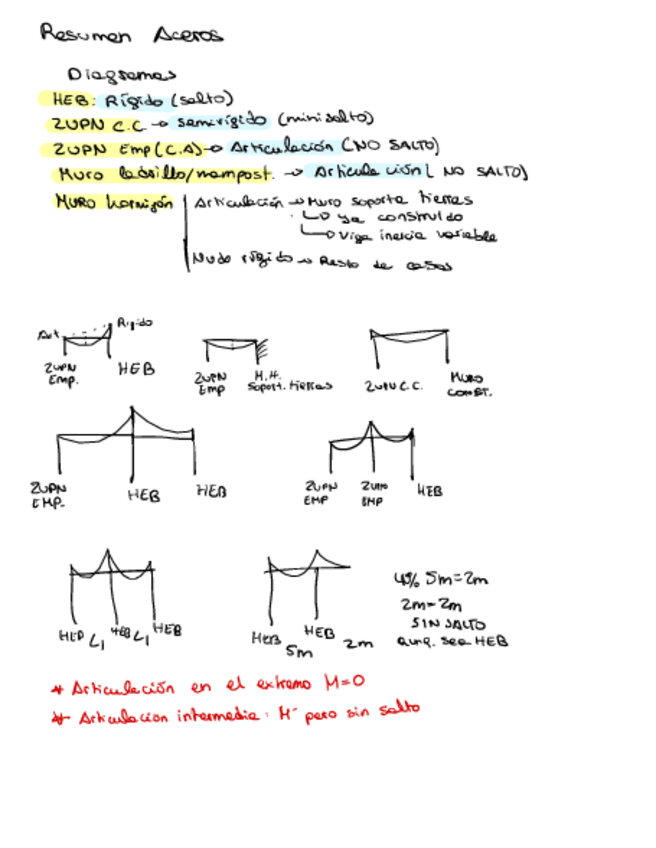 Resumen Aceros
Diagramas
HEB: Rígido (salto)
2UPN C.C → semirígido (minisalto)
2UPN Emp (C.A) → Articulación (NO SALTO)
Muro ladrillo/mampost. → Articulación ( NO SALTO)
MURO hormigón | Articulación → Muro soporta tierras
↳ ya construido
↳ Viga inercia variable
Nudo rígido → Resto de casos
Art. Rígido
2UPN Emp. HEB
2UPN Emp M.H. Soport. tierras
2UPN C.C. MURO CONST.
2UPN EMP. HEB HEB
2UPN EMP 2UPN EMP HEB
HEB L1 HEB L1 HEB
HEB 5m HEB 2m
40% 5m=2m
2m=2m
SIN SALTO
aunq. sea HEB
* Articulación en el extremo M=0
* Articulacion intermedia: M⁻ pero sin salto